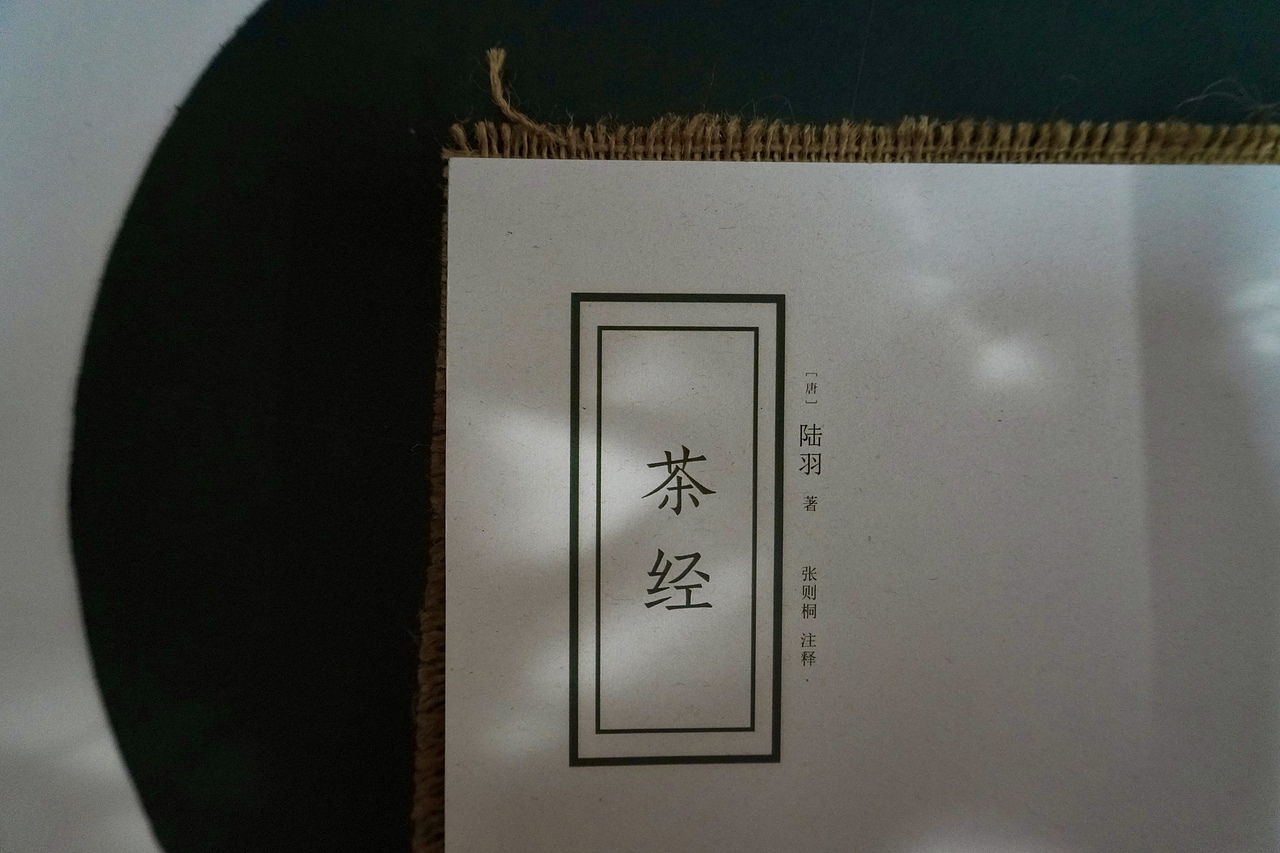 茶经
[唐] 陆羽 著 张则桐 注释